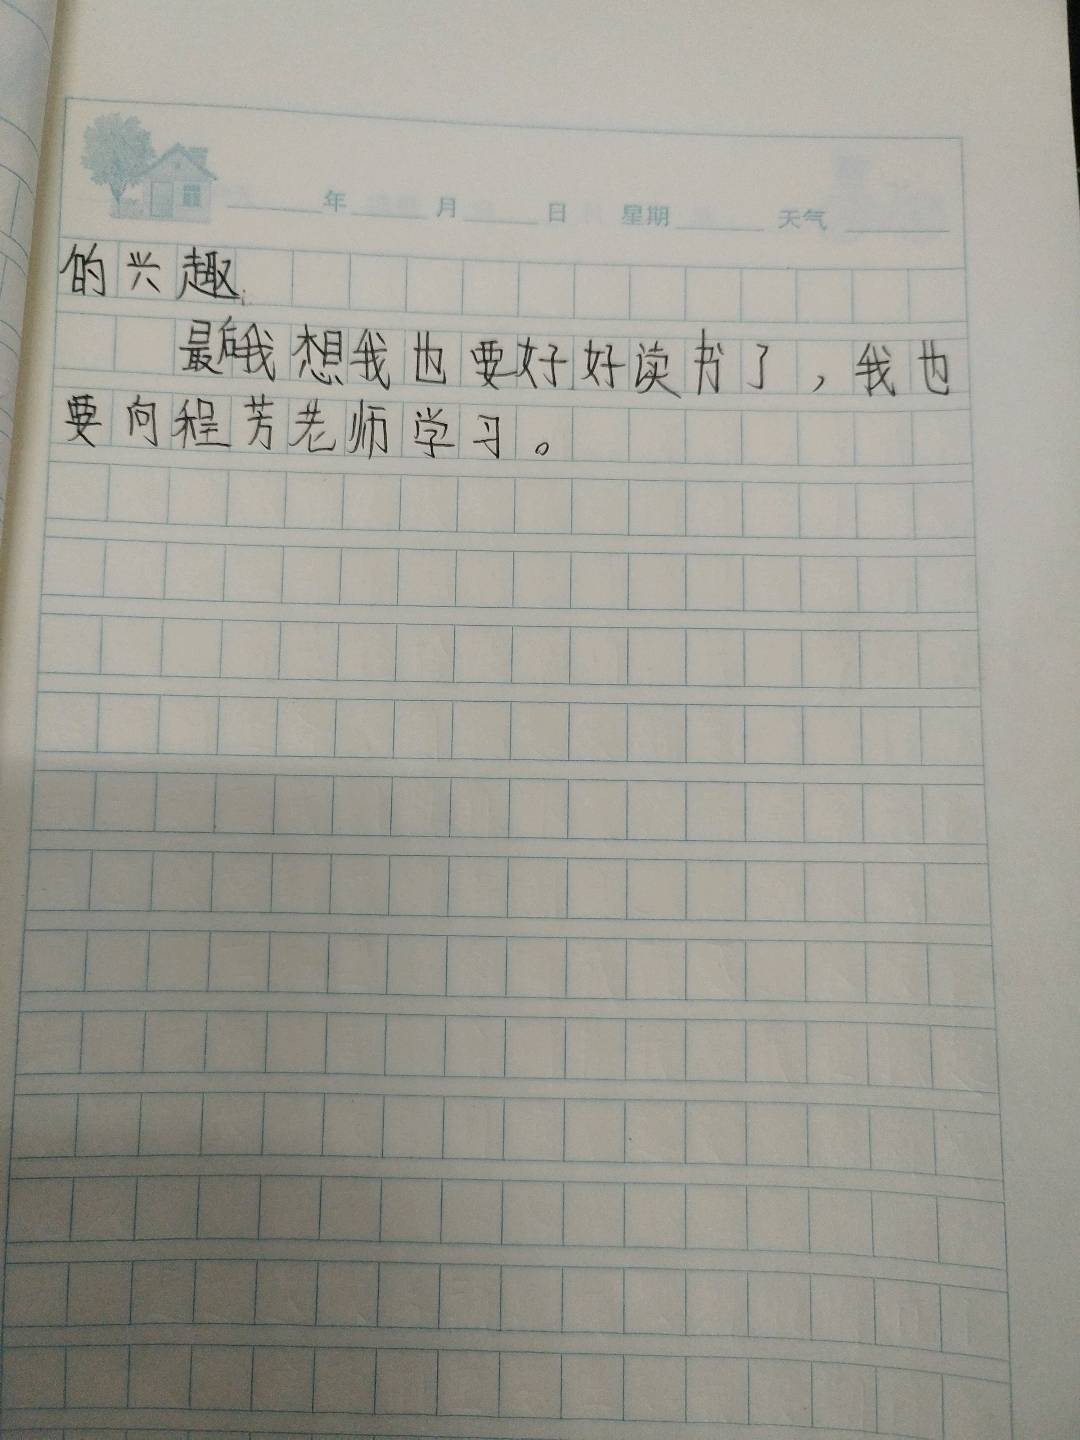 年 月 日 星期 天气
的兴趣.
最后我想我也要好好读书了，我也
要向程芳老师学习。